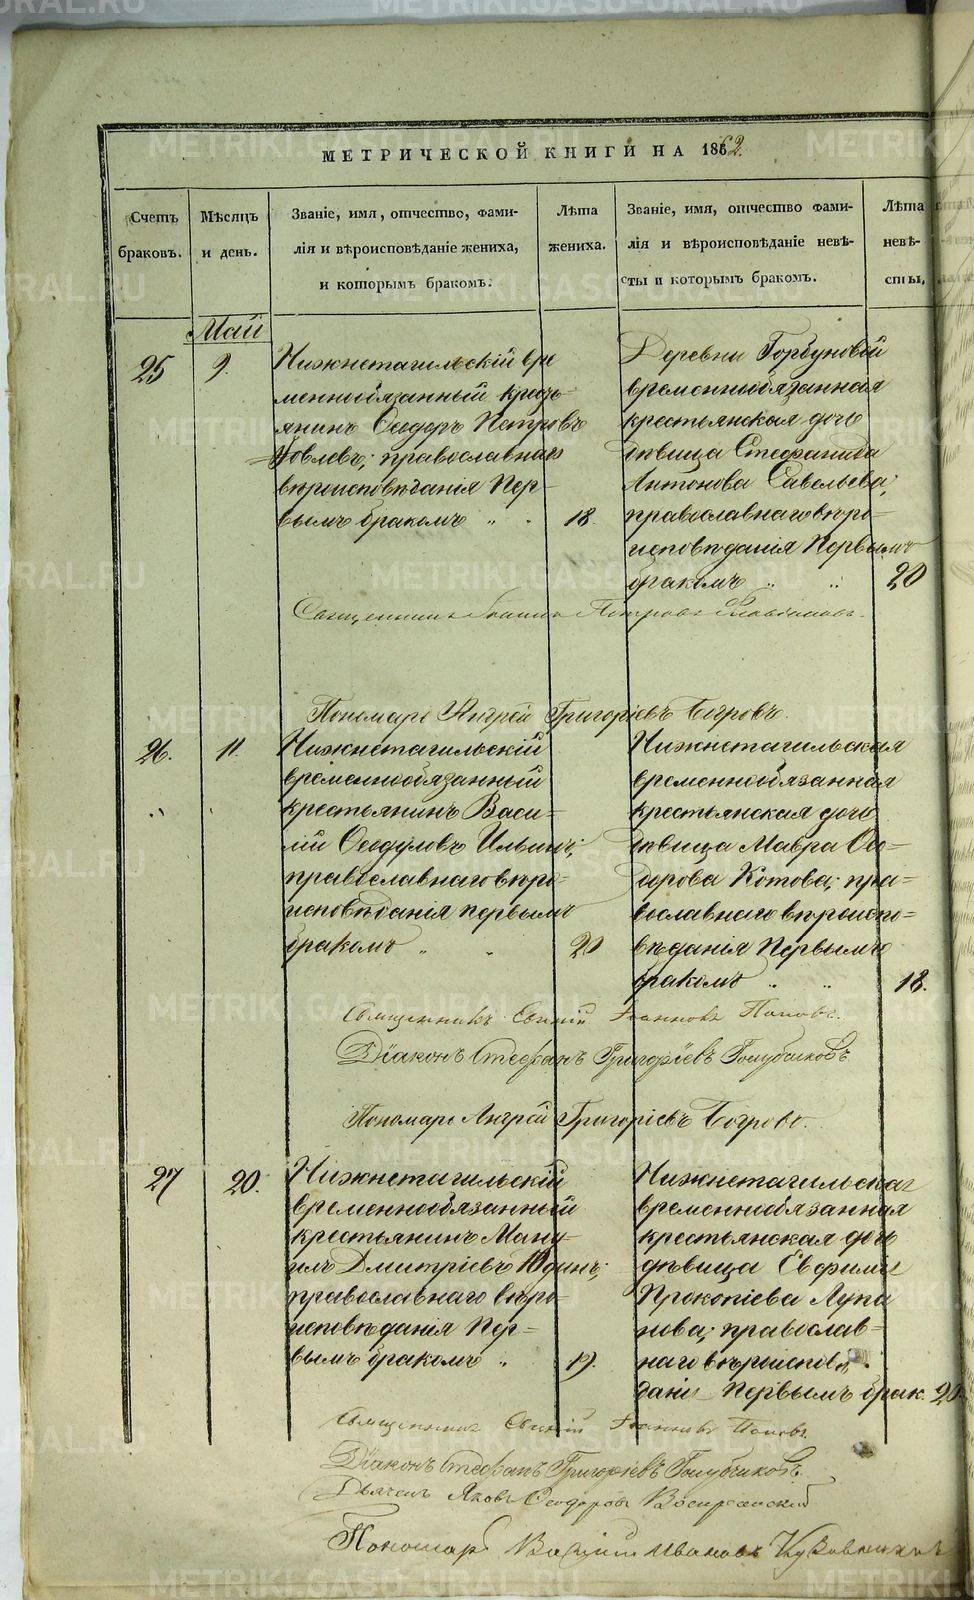 МЕТРИЧЕСКОЙ КНИГИ НА 1862.
Счетъ браковъ.
Мѣсяцъ и день.
Званіе, имя, отчество, фами-
лія и вѣроисповѣданіе жениха,
и которымъ бракомъ.
Лѣта жениха.
Званіе, имя, отчество фами-
лія и вѣроисповѣданіе невѣ-
сты и которымъ бракомъ.
Лѣта невѣ-
сты,
Май
25
9.
Нижнетагильскій вре
меннообязанный кресть-
янинъ Ѳедоръ Петровъ
Яковлевъ; православнаго
вѣроисповѣданія Пер-
вымъ бракомъ " "
18.
Деревни Горбуновой
временнообязанная
крестьянская дочь
дѣвица Стефанида
Антонова Савельева;
православнаго вѣро-
исповѣданія Первымъ
бракомъ " "
20
Священникъ Петровъ
Пономарь Андрей Григоріевъ Бобровъ.
26.
11.
Нижнетагильскій
временнообязанный
крестьянинъ Васи-
лій Ѳеодуловъ Ильинъ;
православнаго вѣро-
исповѣданія первымъ
бракомъ " "
20
Нижнетагильская
временнообязанная
крестьянская дочь
дѣвица Мавра Ѳе-
дорова Котова; пра-
вославнаго вѣроиспо-
вѣданія Первымъ
бракомъ " "
18.
Священникъ Евгеній Іоанновъ Поповъ.
Діаконъ Стефанъ Григоріевъ Голубчиковъ
Пономарь Андрей Григоріевъ Бобровъ.
27
20.
Нижнетагильскій
временнообязанный
крестьянинъ Ману-
илъ Дмитріевъ Юдинъ;
православнаго вѣро-
исповѣданія Пер-
вымъ бракомъ "
19.
Нижнетагильская
временнообязанная
крестьянская дочь
дѣвица Евфимія
Прокопіева Лупа
нова; православ-
наго вѣроисповѣ
данія Первымъ брак.
20.
Священникъ Евгеній Іоанновъ Поповъ.
Діаконъ Стефанъ Григоріевъ Голубчиковъ.
Дьячекъ Яковъ Ѳеодоровъ Воскресенскій
Пономарь Василій Ивановъ
METRIKI.GASO-URAL.RU